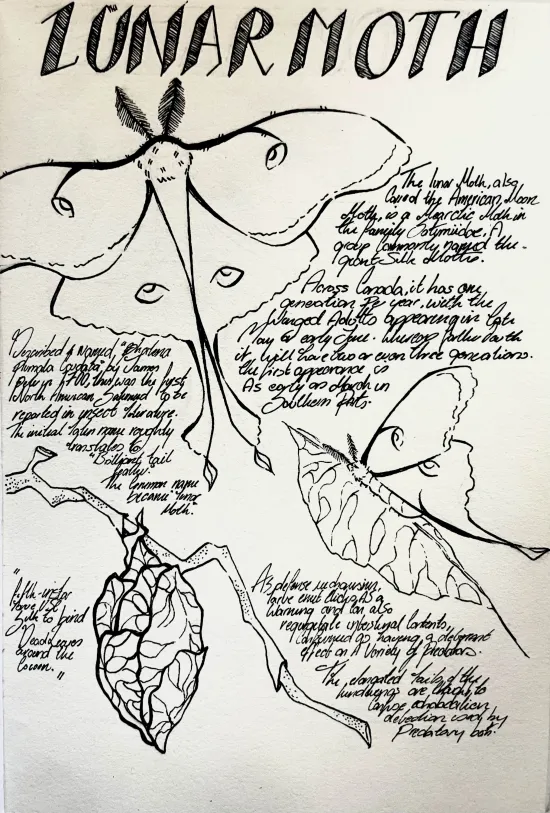 LUNAR MOTH
The lunar Moth, also
Called the American Moon
Moth, is a Nearctic Moth in
the family Saturniidae, A
group Commonly named the
giant Silk Moths.
Across Canada, it has one
generation Per year, with the
Winged Adults appearing in late
May or early June. Whereas farther South
it will have two or even three generations.
the first appearance is
As early as March in
Southern Parts.
Described & Named, "Phalena
plumata Caudata" by James
in 1700, this was the first
North American Saturniid to be
reported in insect literature.
The initial latin name roughly
translates to
"Brilliant, tail
The Common name
became "lunar
Moth".
"fifth-instar
larvae use
Silk to bind
leaves
around the
Cocoon."
As defense mechanisms,
larvae emit clicks, As a
Warning and can also
regurgitate intestinal Contents,
Confirmed as having a deterrent
effect on A Variety of Predators.
The elongated tails of the
hindwings are thought to
Confuse echolocation
detection used by
Predatory bats.